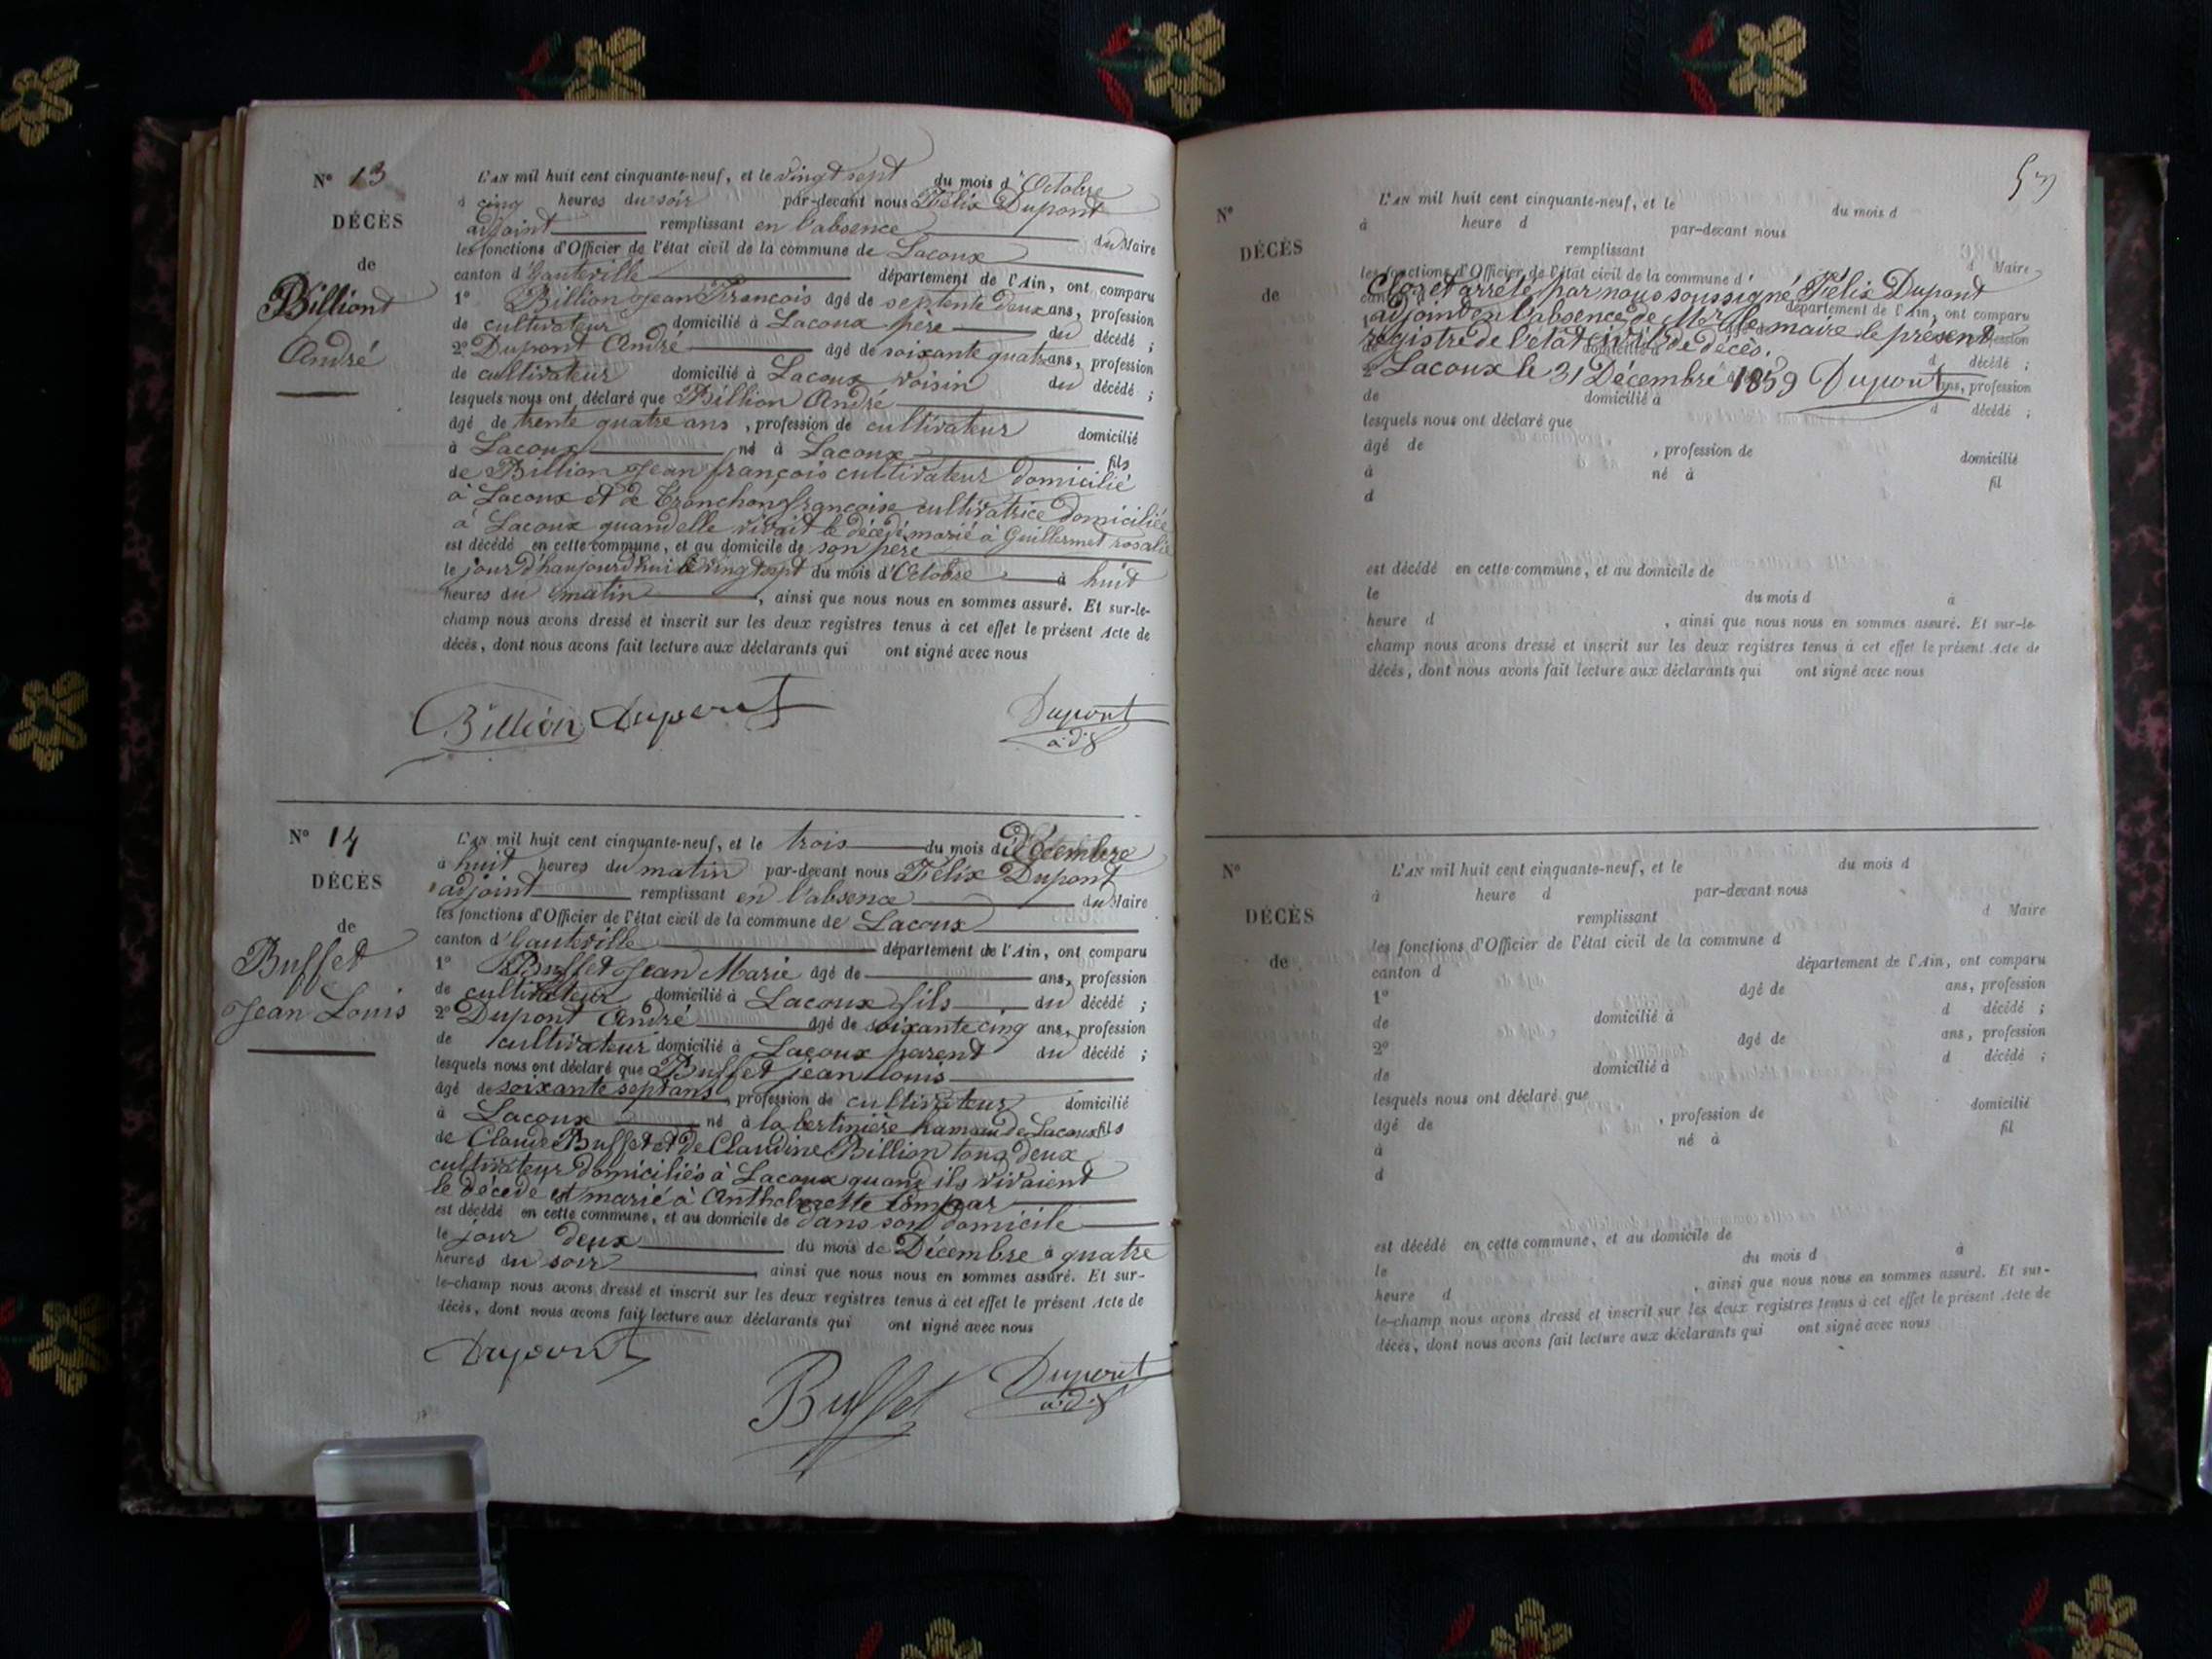 Nº 13
DÉCÈS
de
Billiont
André
L'AN mil huit cent cinquante-neuf, et le vingt sept du mois d'Octobre
à cinq heures du soir par-devant nous Félix Dupont
adjoint remplissant en l'absence du Maire
les fonctions d'Officier de l'état civil de la commune de Lacoux
canton d'hauteville département de l'Ain, ont comparu
1º Billion Jean François âgé de septente deux ans, profession
de cultivateur domicilié à Lacoux père du décédé ;
2º Dupont André âgé de soixante quatre ans, profession
de cultivateur domicilié à Lacoux voisin du décédé ;
lesquels nous ont déclaré que Billion André
âgé de trente quatre ans, profession de cultivateur domicilié
à Lacoux né à Lacoux fils
de Billion Jean françois cultivateur domicilié
à Lacoux et de Tronchon françoise cultivatrice domiciliée
à Lacoux quand elle vivait le décédé marié à Guillermet rosalie
est décédé en cette commune, et au domicile de son père
le jour d'haujourd'hui le vingt sept du mois d'Octobre à huit
heures du matin, ainsi que nous nous en sommes assuré. Et sur-le-
champ nous avons dressé et inscrit sur les deux registres tenus à cet effet le présent Acte de
décès, dont nous avons fait lecture aux déclarants qui ont signé avec nous
Billion Dupont Dupont
adj
Nº 14
DÉCÈS
de
Buffet
Jean Louis
L'AN mil huit cent cinquante-neuf, et le trois du mois de Décembre
à huit heures du matin par-devant nous Félix Dupont
adjoint remplissant en l'absence du Maire
les fonctions d'Officier de l'état civil de la commune de Lacoux
canton d'hauteville département de l'Ain, ont comparu
1º Buffet Jean Marie âgé de ans, profession
de cultivateur domicilié à Lacoux fils du décédé ;
2º Dupont André âgé de soixante cinq ans, profession
de cultivateur domicilié à Lacoux parent du décédé ;
lesquels nous ont déclaré que Buffet jean louis
âgé de soixante sept ans, profession de cultivateur domicilié
à Lacoux né à la bertinière hamau de Lacoux fils
de Claude Buffet et de Claudine Billion tous deux
cultivateur domiciliés à Lacoux quand ils vivaient
le décédé est marié à
est décédé en cette commune, et au domicile de dans son domicile
le jour deux du mois de Décembre à quatre
heures du soir, ainsi que nous nous en sommes assuré. Et sur-
le-champ nous avons dressé et inscrit sur les deux registres tenus à cet effet le présent Acte de
décès, dont nous avons fait lecture aux déclarants qui ont signé avec nous
Dupont Buffet Dupont
adj
Nº
DÉCÈS
de
L'AN mil huit cent cinquante-neuf, et le du mois d
à heure d par-devant nous
remplissant d Maire
les fonctions d'Officier de l'état civil de la commune d
Clos et arrêté par nous soussigné Félix Dupont
département de l'Ain, ont comparu
adjoint en l'absence de Mr le maire le présent
registre de l'état civil de décès.
d décédé ;
Lacoux le 31 Décembre 1859 Dupont
ans, profession
de domicilié à d décédé ;
lesquels nous ont déclaré que
âgé de , profession de domicilié
à né à fil
d
est décédé en cette commune, et au domicile de
le du mois d à
heure d , ainsi que nous nous en sommes assuré. Et sur-le-
champ nous avons dressé et inscrit sur les deux registres tenus à cet effet le présent Acte de
décès, dont nous avons fait lecture aux déclarants qui ont signé avec nous
Nº
DÉCÈS
de
L'AN mil huit cent cinquante-neuf, et le du mois d
à heure d par-devant nous
remplissant d Maire
les fonctions d'Officier de l'état civil de la commune d
canton d département de l'Ain, ont comparu
1º âgé de ans, profession
de domicilié à d décédé ;
2º âgé de ans, profession
de domicilié à d décédé ;
lesquels nous ont déclaré que
âgé de , profession de domicilié
à né à fil
d
est décédé en cette commune, et au domicile de
le du mois d à
heure d , ainsi que nous nous en sommes assuré. Et sur-
le-champ nous avons dressé et inscrit sur les deux registres tenus à cet effet le présent Acte de
décès, dont nous avons fait lecture aux déclarants qui ont signé avec nous